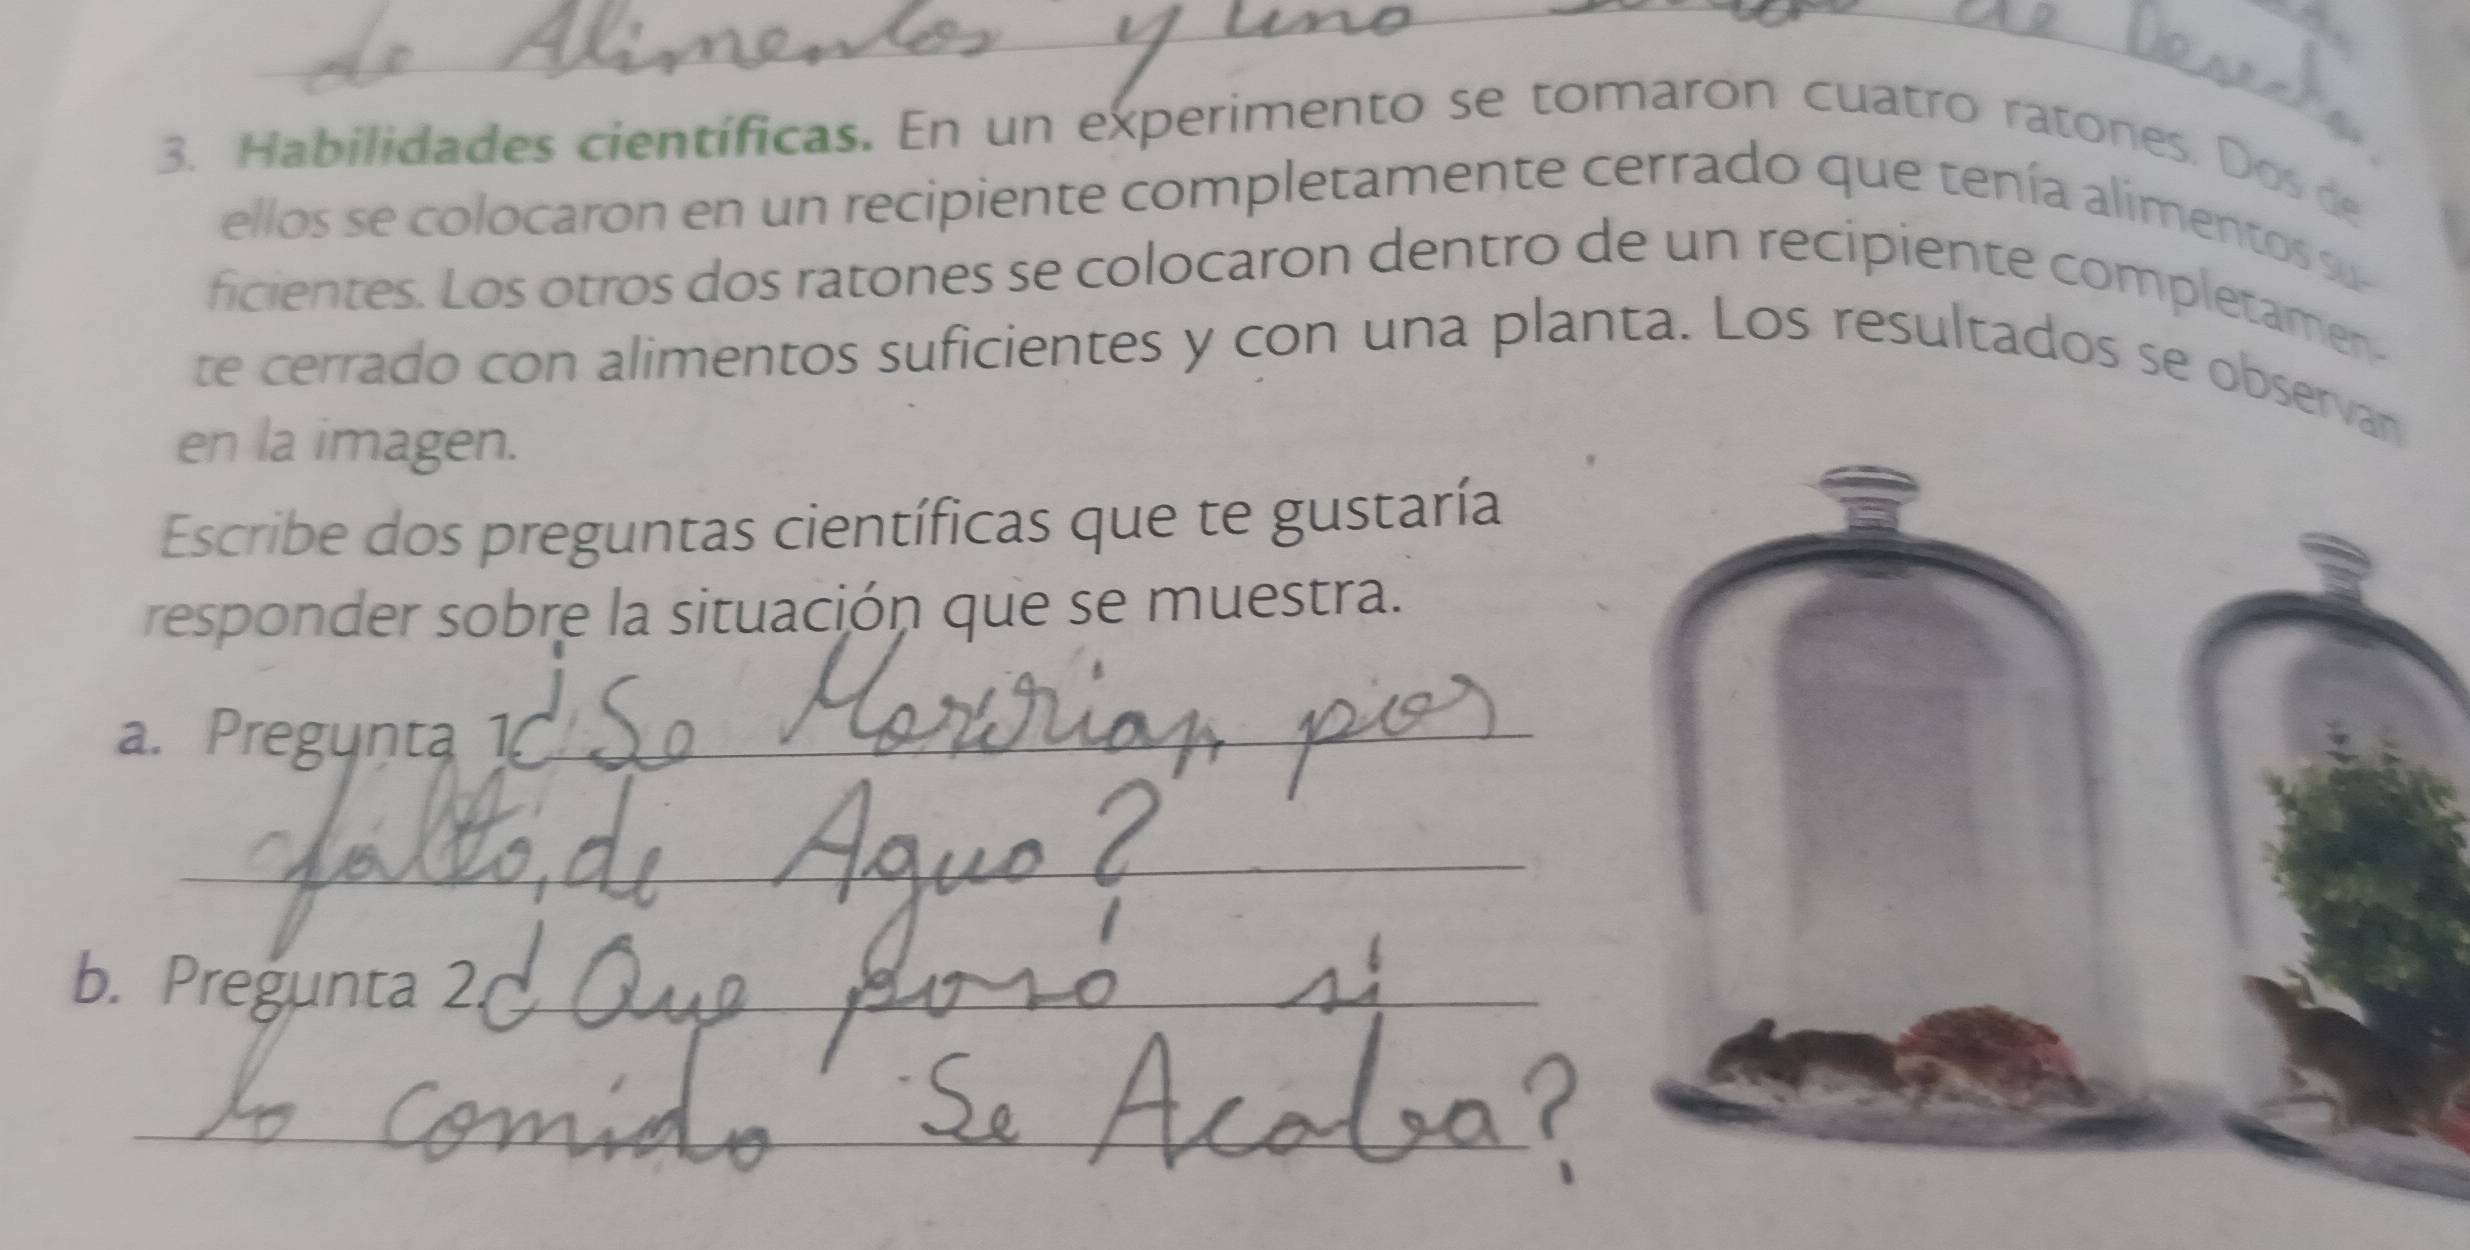 de Alimentos y uno de Desecho.
3. Habilidades científicas. En un experimento se tomaron cuatro ratones. Dos de
ellos se colocaron en un recipiente completamente cerrado que tenía alimentos su-
ficientes. Los otros dos ratones se colocaron dentro de un recipiente completamen-
te cerrado con alimentos suficientes y con una planta. Los resultados se observan
en la imagen.
Escribe dos preguntas científicas que te gustaría
responder sobre la situación que se muestra.
a. Pregunta 1 ¿Se Moririan por
falta de Agua?
b. Pregunta 2. ¿Que paso si
la comida Se Acaba?